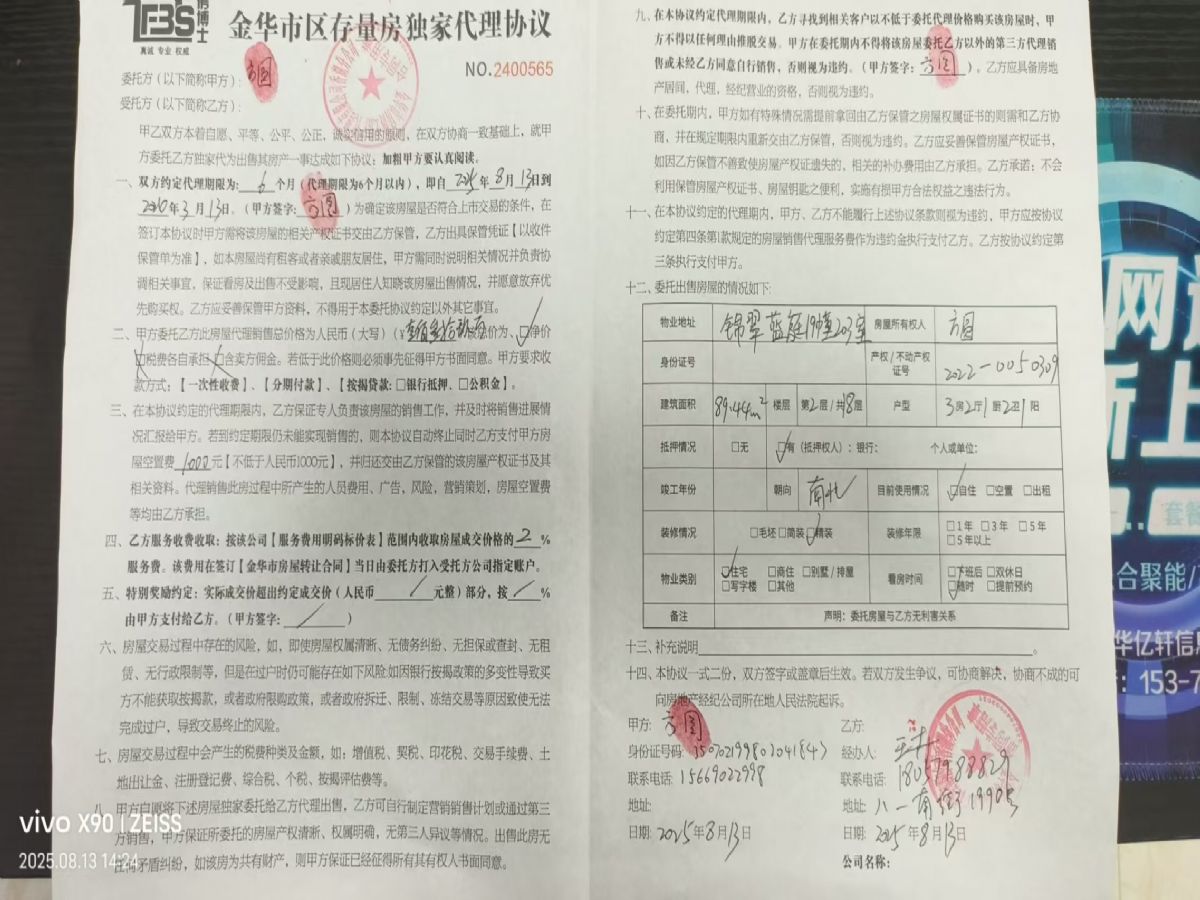 TEB'S
真诚 专业 权威
金华市区存量房独家代理协议
NO.2400565
委托方（以下简称甲方）：方圆
受托方（以下简称乙方）：
甲乙双方本着自愿、平等、公平、公正，诚实信用的原则，在双方协商一致基础上，就甲
方委托乙方独家代为出售其房产一事达成如下协议：加粗甲方要认真阅读。
一、双方约定代理期限为：6个月（代理期限为6个月以内），即自2025年8月13日到
年3月13日。（甲方签字：方圆）为确定该房屋是否符合上市交易的条件，在
签订本协议时甲方需将该房屋的相关产权证书交由乙方保管，乙方出具保管凭证【以收件
保管单为准】，如本房屋尚有租客或者亲戚朋友居住，甲方需同时说明相关情况并负责协
调相关事宜，保证看房及出售不受影响，且现居住人知晓该房屋出售情况，并愿意放弃优
先购买权。乙方应妥善保管甲方资料，不得用于本委托协议约定以外其它事宜。
二、甲方委托乙方此房屋代理销售总价格为人民币（大写）（¥ 价为、☑净价
□税费各自承担 □含卖方佣金。若低于此价格则必须事先征得甲方书面同意。甲方要求收
款方式：【一次性收费】、【分期付款】、【按揭贷款：□银行抵押、□公积金】。
三、在本协议约定的代理期限内，乙方保证专人负责该房屋的销售工作，并及时将销售进展情
况汇报给甲方。若到约定期限仍未能实现销售的，则本协议自动终止同时乙方支付甲方房
屋空置费1000元【不低于人民币1000元】，并归还交由乙方保管的该房屋产权证书及其
相关资料。代理销售此房过程中所产生的人员费用、广告，风险，营销策划，房屋空置费
等均由乙方承担。
四、乙方服务收费收取：按该公司【服务费用明码标价表】范围内收取房屋成交价格的2%
服务费。该费用在签订【金华市房屋转让合同】当日由委托方打入受托方公司指定账户。
五、特别奖励约定：实际成交价超出约定成交价（人民币/元整）部分，按/%
由甲方支付给乙方。（甲方签字：/）
六、房屋交易过程中存在的风险，如，即使房屋权属清晰、无债务纠纷、无担保或查封、无租
赁、无行政限制等，但是在过户时仍可能存在如下风险:如因银行按揭政策的多变性导致买
方不能获取按揭款，或者政府限购政策，或者政府拆迁、限制、冻结交易等原因致使无法
完成过户，导致交易终止的风险。
七、房屋交易过程中会产生的税费种类及金额，如：增值税、契税、印花税、交易手续费、土
地出让金、注册登记费、综合税、个税、按揭评估费等。
八、甲方自愿将下述房屋独家委托给乙方代理出售，乙方可自行制定营销销售计划或通过第三
方销售，甲方保证所委托的房屋产权清晰、权属明确，无第三人异议等情况。出售此房无
任何矛盾纠纷，如该房为共有财产，则甲方保证已经征得所有其有权人书面同意。
vivo X90 | ZEISS
2025.08.13 14:24
九、在本协议约定代理期限内，乙方寻找到相关客户以不低于委托代理价格购买该房屋时，甲
方不得以任何理由推脱交易。甲方在委托期内不得将该房屋委托乙方以外的第三方代理销
售或未经乙方同意自行销售，否则视为违约。（甲方签字：方圆）。乙方应具备房地
产居间，代理，经纪营业的资格，否则视为违约。
十、在委托期内，甲方如有特殊情况需提前拿回由乙方保管之房屋权属证书的则需和乙方协
商，并在规定期限内重新交由乙方保管，否则视为违约。乙方应妥善保管房屋产权证书，
如因乙方保管不善致使房屋产权证遗失的，相关的补办费用由乙方承担。乙方承诺：不会
利用保管房屋产权证书、房屋钥匙之便利，实施有损甲方合法权益之违法行为。
十一、在本协议约定的代理期内，甲方、乙方不能履行上述协议条款则视为违约，甲方应按协议
约定第四条第1款规定的房屋销售代理服务费作为违约金执行支付乙方。乙方按协议约定第
三条执行支付甲方。
十二、委托出售房屋的情况如下：
物业地址 锦翠蓝庭19幢203室 房屋所有权人 方圆
身份证号 产权/不动产权证号 2022-0050309
建筑面积 89.44m² 楼层 第2层/共18层 户型 3房2厅1厨2卫1阳
抵押情况 □无 ☑有（抵押权人）：银行： 个人或单位：
竣工年份 朝向 南北 目前使用情况 ☑自住 □空置 □出租
装修情况 □毛坯 □简装 ☑精装 装修年限 □1年 □3年 □5年 □5年以上
物业类别 ☑住宅 □商住 □别墅/排屋 □写字楼 □其他 看房时间 □下班后 □双休日 ☑随时 □提前预约
备注 声明：委托房屋与乙方无利害关系
十三、补充说明。
十四、本协议一式二份，双方签字或盖章后生效。若双方发生争议，可协商解决，协商不成的可
向房地产经纪公司所在地人民法院起诉。
甲方：方圆
身份证号码：
联系电话：15669022998
地址：
日期：2025年8月13日
乙方：
经办人：
联系电话：18057988829
地址：八一南街1990号
日期：2025年8月13日
公司名称：
网
新上
套餐
合聚能/
华亿轩信息
: 153-7